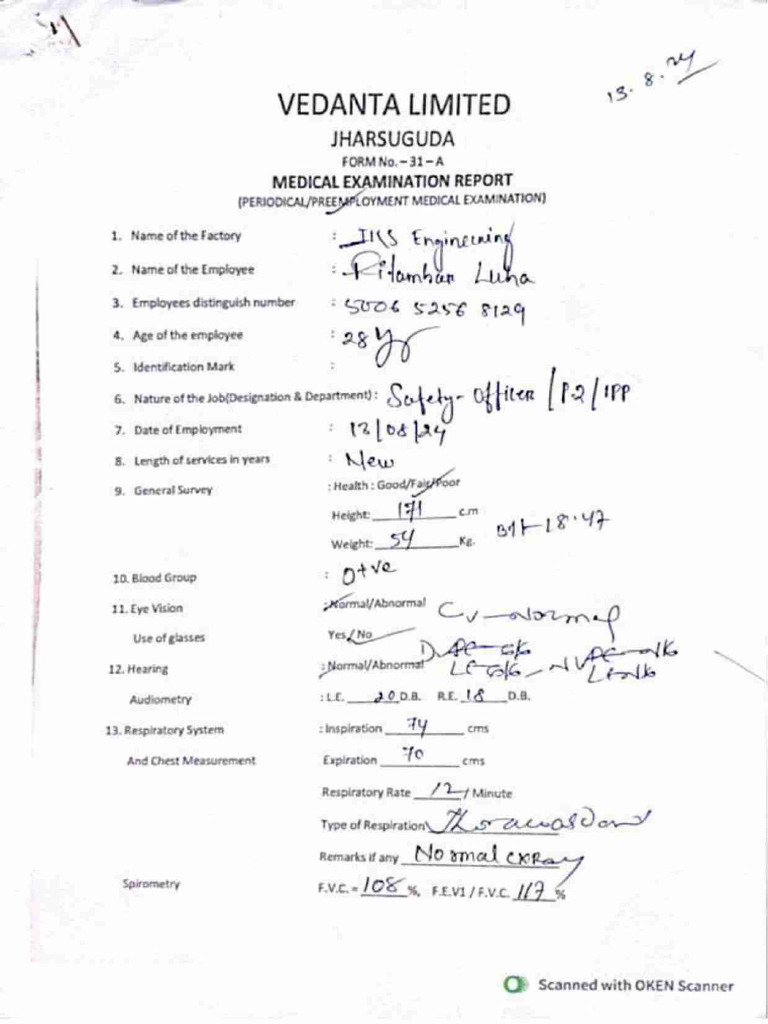 13.8.24
VEDANTA LIMITED
JHARSUGUDA
FORM No. – 31 – A
MEDICAL EXAMINATION REPORT
(PERIODICAL/PREEMPLOYMENT MEDICAL EXAMINATION)
1. Name of the Factory : Engineering
2. Name of the Employee : Ritambar Luha
3. Employees distinguish number : 5006 5256 8129
4. Age of the employee : 28 Yr
5. Identification Mark :
6. Nature of the Job(Designation & Department) : Safety-Officer / P2 / IPP
7. Date of Employment : 13/08/24
8. Length of services in years : New
9. General Survey : Health : Good/Fair/Poor
Height: 171 c.m
Weight: 54 Kg. 18.47
10. Blood Group : O+ve
11. Eye Vision : Normal/Abnormal CV-Normal
Use of glasses Yes/No
12. Hearing : Normal/Abnormal
Audiometry : L.E. 20 D.B. R.E. 18 D.B.
13. Respiratory System : Inspiration 74 cms
And Chest Measurement Expiration 70 cms
Respiratory Rate 12 / Minute
Type of Respiration
Remarks if any Normal CXRay
Spirometry F.V.C. = 108 %, F.E.V1 / F.V.C. 117 %
Scanned with OKEN Scanner